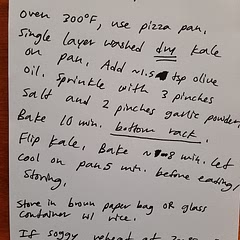 Oven 300°F, use pizza pan.
Single layer washed dry kale
on pan. Add ~1.5 tsp olive
oil. Sprinkle with 3 pinches
salt and 2 pinches garlic powder
Bake 10 min. bottom rack.
Flip kale, Bake ~7-8 min. Let
cool on pan 5 min. before eating/
storing.
Store in brown paper bag OR glass
container w/ rice.
If soggy reheat at